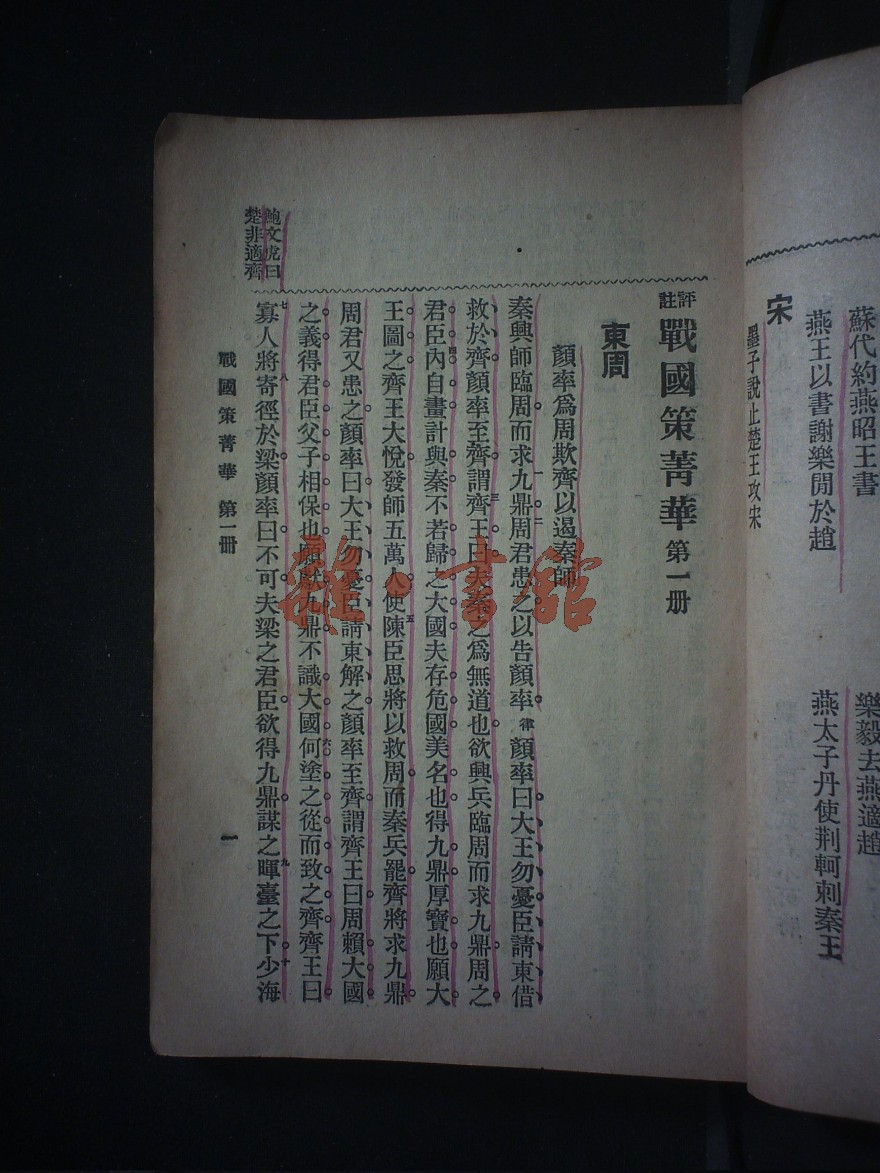 蘇代約燕昭王書
樂毅去燕適趙
燕王以書謝樂閒於趙
燕太子丹使荆軻刺秦王
宋
墨子說止楚王攻宋
評註
戰國策菁華 第一册
東周
顏率爲周欺齊以遏秦師
秦興師臨周而求九鼎周君患之以告顏率律顏率曰大王勿憂臣請東借
救於齊顏率至齊謂齊王曰夫秦之爲無道也欲興兵臨周而求九鼎周之
君臣內自畫計與秦不若歸之大國夫存危國美名也得九鼎厚寶也願大
王圖之齊王大悅發師五萬人使陳臣思將以救周而秦兵罷齊將求九鼎
周君又患之顏率曰大王勿憂臣請東解之顏率至齊謂齊王曰周賴大國
之義得君臣父子相保也願獻九鼎不識大國何塗之從而致之齊齊王曰
寡人將寄徑於梁顏率曰不可夫梁之君臣欲得九鼎謀之暉臺之下少海
鮑文虎曰
楚非適齊
戰國策菁華 第一册
一
雜·書館